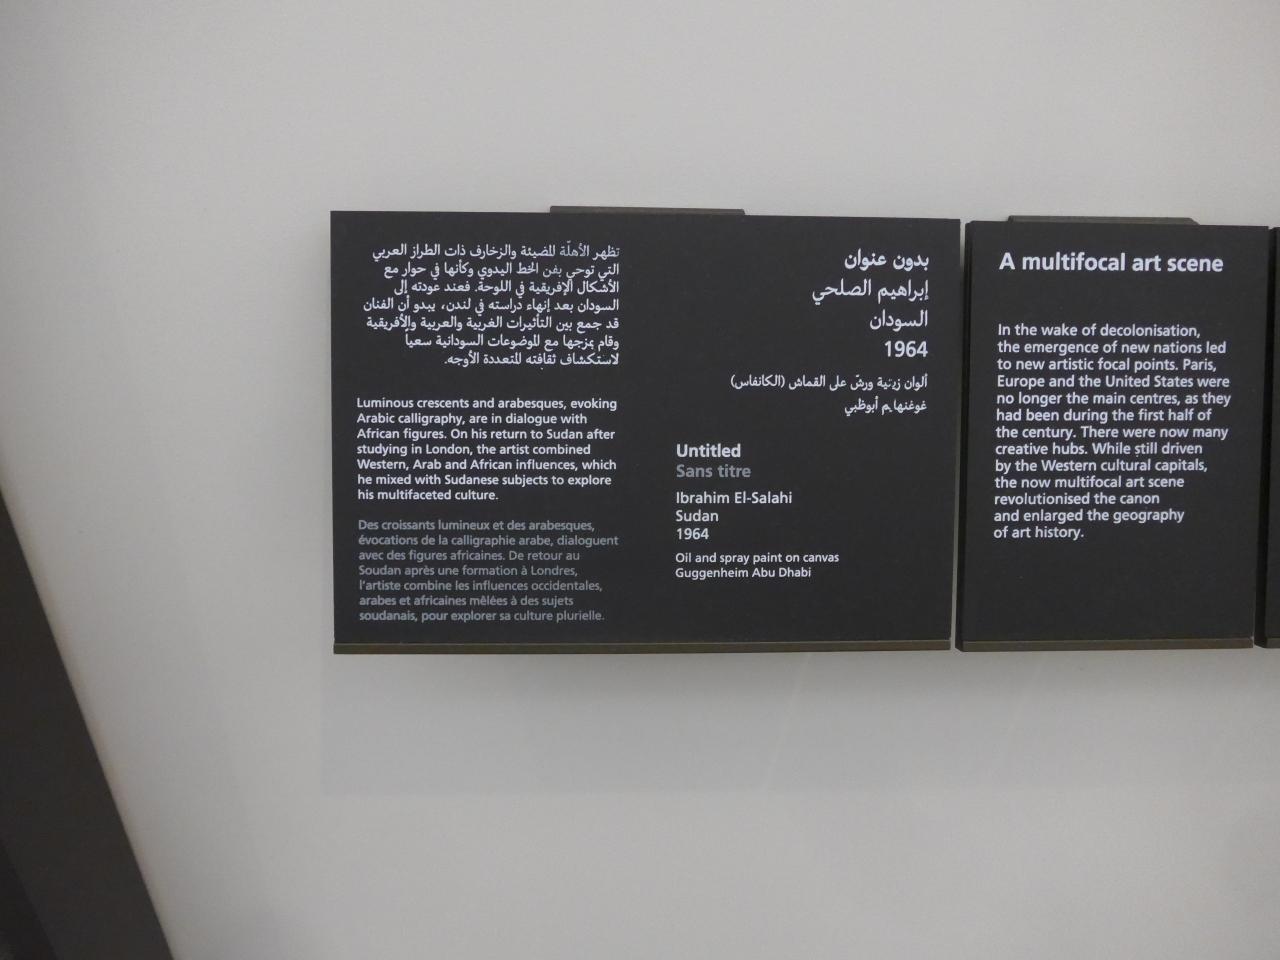 تظهر الأهلّة المضيئة والزخارف ذات الطراز العربي
التي توحي بفن الخط اليدوي وكأنها في حوار مع
الأشكال الإفريقية في اللوحة. فعند عودته إلى
السودان بعد إنهاء دراسته في لندن، يبدو أن الفنان
قد جمع بين التأثيرات الغربية والعربية والأفريقية
وقام بمزجها مع الموضوعات السودانية سعياً
لاستكشاف ثقافته المتعددة الأوجه.
Luminous crescents and arabesques, evoking
Arabic calligraphy, are in dialogue with
African figures. On his return to Sudan after
studying in London, the artist combined
Western, Arab and African influences, which
he mixed with Sudanese subjects to explore
his multifaceted culture.
Des croissants lumineux et des arabesques,
évocations de la calligraphie arabe, dialoguent
avec des figures africaines. De retour au
Soudan après une formation à Londres,
l'artiste combine les influences occidentales,
arabes et africaines mêlées à des sujets
soudanais, pour explorer sa culture plurielle.
بدون عنوان
إبراهيم الصلحي
السودان
1964
ألوان زيتية ورشّ على القماش (الكانفاس)
غوغنهايم أبوظبي
Untitled
Sans titre
Ibrahim El-Salahi
Sudan
1964
Oil and spray paint on canvas
Guggenheim Abu Dhabi
A multifocal art scene
In the wake of decolonisation,
the emergence of new nations led
to new artistic focal points. Paris,
Europe and the United States were
no longer the main centres, as they
had been during the first half of
the century. There were now many
creative hubs. While still driven
by the Western cultural capitals,
the now multifocal art scene
revolutionised the canon
and enlarged the geography
of art history.